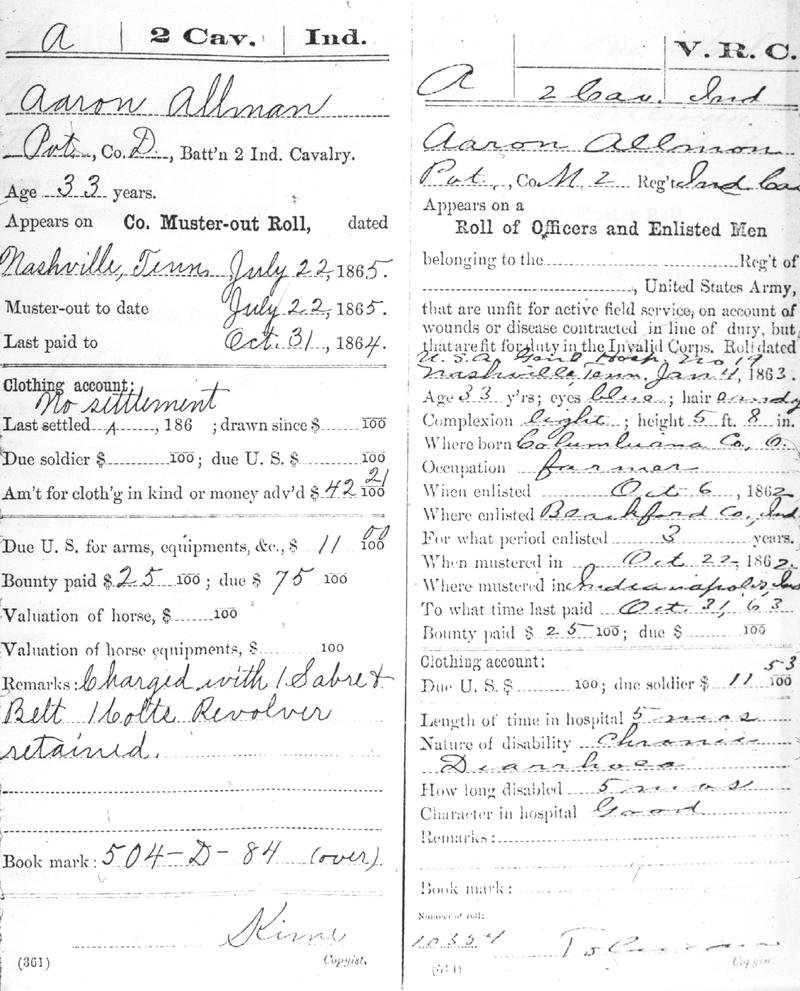 A | 2 Cav. | Ind.
Aaron Allman
Pvt., Co. D., Batt'n 2 Ind. Cavalry.
Age 33 years.
Appears on Co. Muster-out Roll, dated
Nashville, Tenn July 22, 1865.
Muster-out to date July 22, 1865.
Last paid to Oct. 31, 1864.
Clothing account:
No settlement
Last settled, 186 ; drawn since $ 100
Due soldier $ 100; due U. S. $ 100
Am't for cloth'g in kind or money adv'd $ 42 21/100
Due U. S. for arms, equipments, &c., $ 11 00/100
Bounty paid $ 25 100; due $ 75 100
Valuation of horse, $ 100
Valuation of horse equipments, $ 100
Remarks: Charged with 1 Sabre &
Belt 1 Colts Revolver
retained.
Book mark: 504-D-84 (over)
(361) Copyist.
V. R. C.
A 2 Cav. Ind
Aaron Allmon
Pvt., Co. M, 2 Reg't Ind Ca
Appears on a
Roll of Officers and Enlisted Men
belonging to the Reg't of
, United States Army,
that are unfit for active field service, on account of
wounds or disease contracted in line of duty, but
that are fit for duty in the Invalid Corps. Roll dated
U. S. A. Gen'l Hosp. No 19
Nashville, Tenn, Jan 4, 1863.
Age 33 y'rs; eyes blue; hair sandy
Complexion light; height 5 ft. 8 in.
Where born Columbiana Co, O.
Occupation farmer
When enlisted Oct 6, 1862
Where enlisted Blackford Co, Ind
For what period enlisted 3 years.
When mustered in Oct 22, 1862.
Where mustered in Indianapolis, In
To what time last paid Oct. 31, 63
Bounty paid $ 25 100; due $ 100
Clothing account:
Due U. S. $ 100; due soldier $ 11 53/100
Length of time in hospital 5 mos
Nature of disability Chronic
Diarrhoea
How long disabled 5 mos
Character in hospital Good
Remarks:
Book mark:
Number of roll:
10354
Copyist.